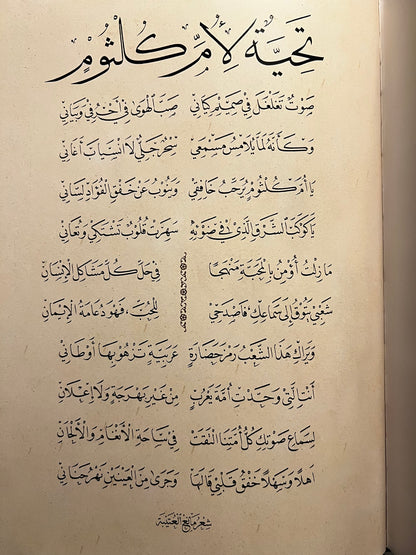 تحية لأم كلثوم
صَوتٌ تَغَلغَلَ في صَمِيمِ كِيَاني صَبَّ الهَوى في أَحْرُفي وَبَيَاني
وَكَأنَّهُ لمَّا يُلَامِسُ مِسْمَعي سِحْرٌ جَليٌّ لَا انْسِيَابُ أغَاني
يَا أمَّ كُلْثُومٍ يُرَحِّبُ خَافِقي وَيَنُوبُ عَن خَفْقِ الفُؤَادِ لِسَاني
يَا كَوكَبَ الشَّرْقِ الَّذي في ضَوئِهِ سَهِرَتْ قُلُوبٌ تَشْتَكي وَتُعَاني
مَا زِلْتُ أُؤمِنُ بِالمحَبَّةِ مَنْهجًا في حَلِّ كُلِّ مَشَاكِلِ الإنْسَانِ
شَعْبي يَتُوقُ إلى سَمَاعِكِ، فَاصْدَحِي لِلْحُبِّ، فَهْوَ دُعَامَةُ الإيمَانِ
وَيَرَاكِ هَذَا الشَّعْبُ رَمْزَ حَضَارَةٍ عَرَبيَّةٍ تَزْهُو بِهَا أوْطَاني
أنْتِ الَّتي وَحَّدْتِ أمَّةَ يَعْرُبٍ مِنْ غَيرِ بَهْرَجَةٍ وَلَا إعْلَانِ
لِسَمَاعِ صَوتِكِ كُلُّ أمَّتِنَا الْتَقَتْ في سَاحَةِ الأنْغَامِ وَالألْحَانِ
أهْلًا وَسَهْلًا خَفْقُ قَلْبي قَالَهَا وَجَرَى مِنَ العَيْنَيْنِ نَهْرُ حَنَاني
شعر مانع العتيبة